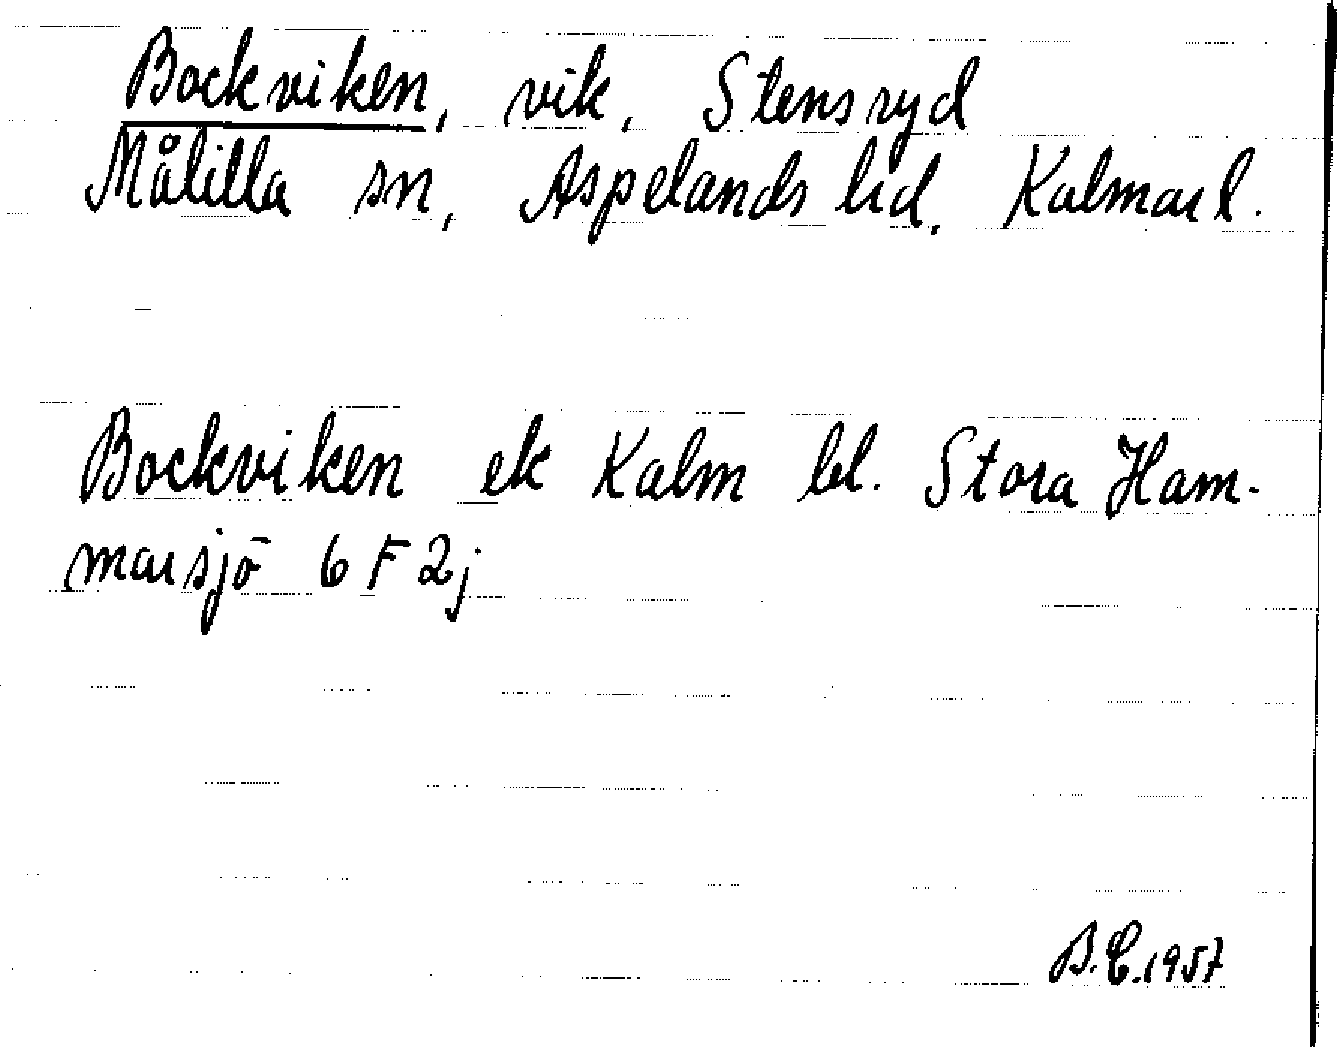 Bockviken, vik, Stensryd
Målilla sn, Aspelands hd, Kalmar l.
Bockviken ek Kalm bl. Stora Ham-
marsjö 6 F 2j
B.E. 1957